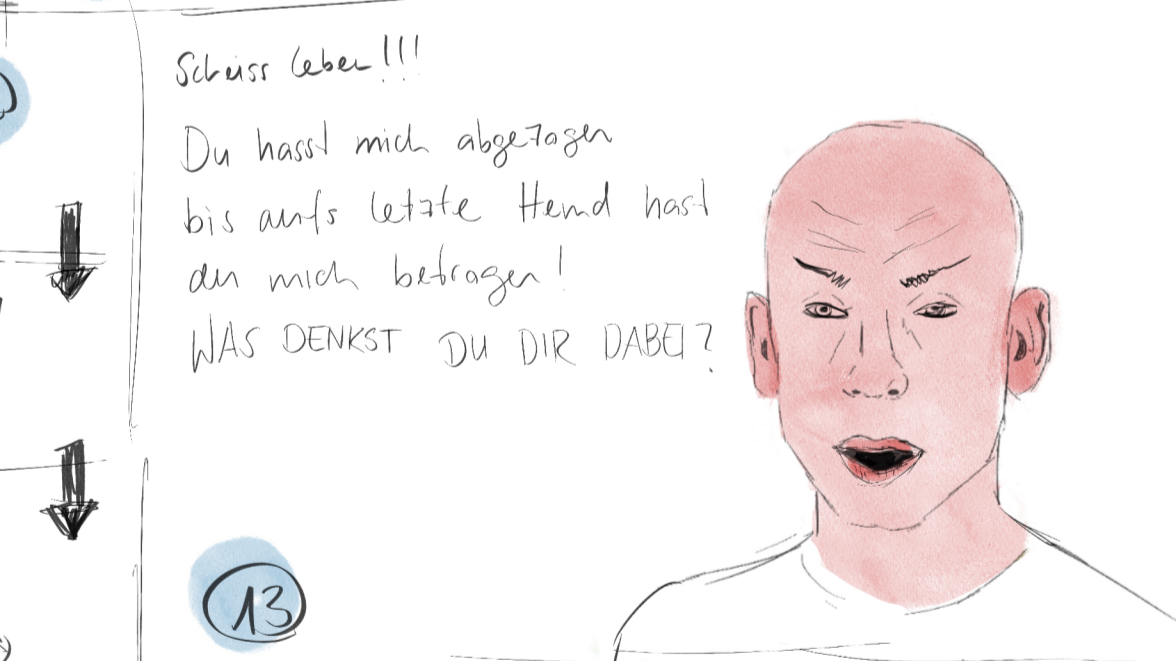 Scheiss Leben!!!
Du hasst mich abgezogen
bis aufs letzte Hemd hast
du mich betrogen!
WAS DENKST DU DIR DABEI?
13